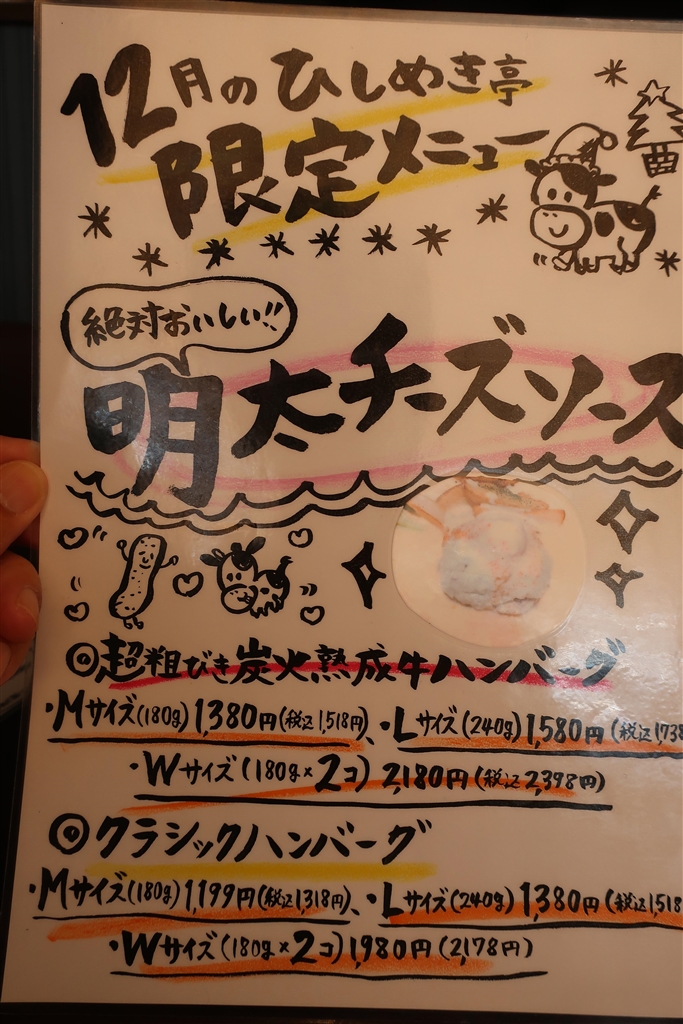 12月のひしめき亭
限定メニュー
絶対おいしい!!
明太チーズソース
◎超粗びき炭火熟成牛ハンバーグ
・Mサイズ(180g)1,380円(税込1,518円)、・Lサイズ(240g)1,580円(税込1,738
・Wサイズ(180g×2コ)2,180円(税込2,398円)
◎クラシックハンバーグ
・Mサイズ(180g)1,199円(税込1,318円)、・Lサイズ(240g)1,380円(税込1,518
・Wサイズ(180g×2コ)1,980円(2,178円)